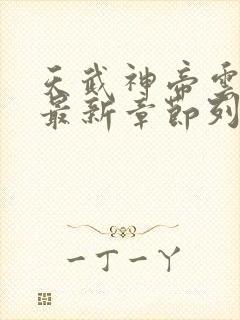 天武神帝雲
最新章節列
一丁一丫